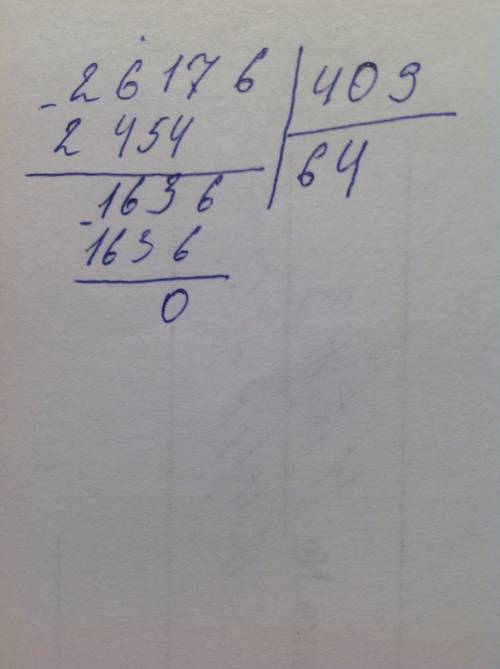 -26176 | 409
2454 | 64
-1636
1636
0